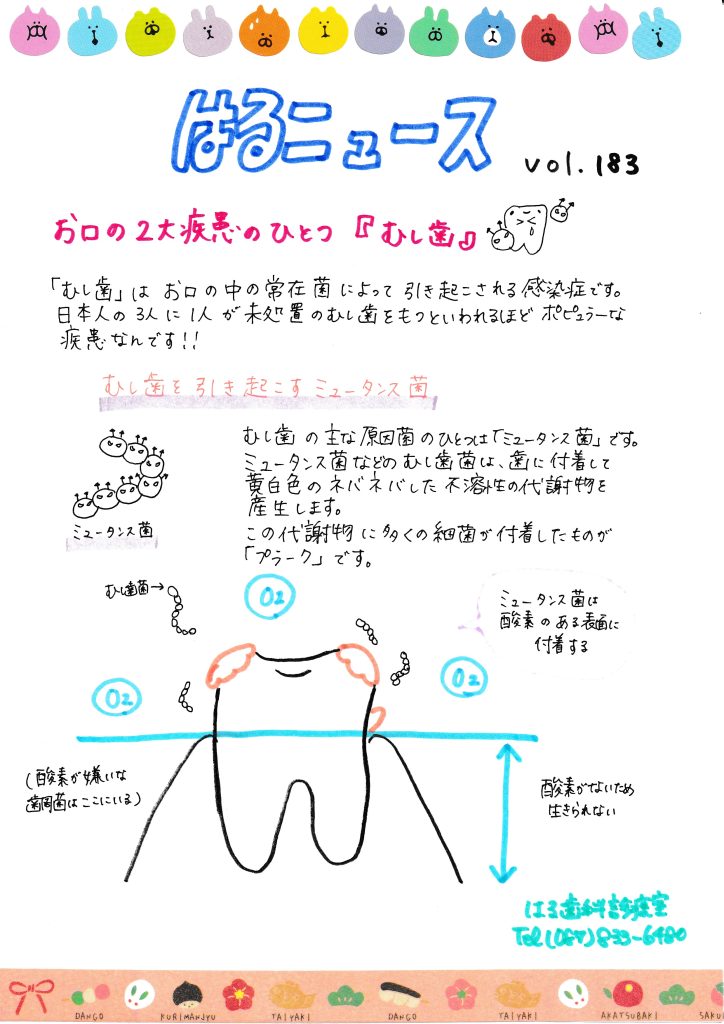 はるニュース vol.183
お口の2大疾患のひとつ『むし歯』
「むし歯」は お口の中の常在菌によって 引き起こされる感染症です。
日本人の3人に1人が未処置のむし歯をもつといわれるほど ポピュラーな
疾患なんです!!
むし歯を引き起こすミュータンス菌
むし歯の主な原因菌のひとつは「ミュータンス菌」です。
ミュータンス菌などのむし歯菌は、歯に付着して
黄白色のネバネバした不溶性の代謝物を
産生します。
この代謝物に多くの細菌が付着したものが
「プラーク」です。
ミュータンス菌
むし歯菌→
O2
ミュータンス菌は
酸素のある表面に
付着する
O2
O2
(酸素が嫌いな
歯周菌はここにいる)
酸素がないため
生きられない
はる歯科診療室
Tel(087)833-6480
DANGO KURIMANJYU TAIYAKI DANGO TAIYAKI AKATSUBAKI SAKU